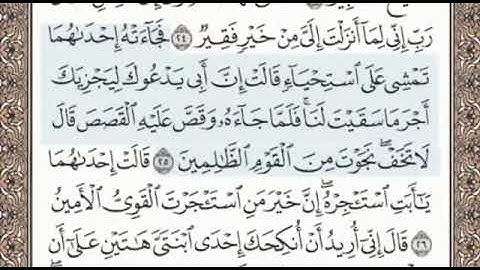 رَبِّ إِنِّي لِمَا أَنزَلْتَ إِلَيَّ مِنْ خَيْرٍ فَقِيرٌ ٢٤ فَجَاءَتْهُ إِحْدَىٰهُمَا
تَمْشِي عَلَى ٱسْتِحْيَاءٍ قَالَتْ إِنَّ أَبِي يَدْعُوكَ لِيَجْزِيَكَ
أَجْرَ مَا سَقَيْتَ لَنَا ۚ فَلَمَّا جَاءَهُۥ وَقَصَّ عَلَيْهِ ٱلْقَصَصَ قَالَ
لَا تَخَفْ ۖ نَجَوْتَ مِنَ ٱلْقَوْمِ ٱلظَّٰلِمِينَ ٢٥ قَالَتْ إِحْدَىٰهُمَا
يَٰٓأَبَتِ ٱسْتَـْٔجِرْهُ ۖ إِنَّ خَيْرَ مَنِ ٱسْتَـْٔجَرْتَ ٱلْقَوِيُّ ٱلْأَمِينُ
٢٦ قَالَ إِنِّي أُرِيدُ أَنْ أُنكِحَكَ إِحْدَى ٱبْنَتَيَّ هَٰتَيْنِ عَلَىٰ أَن